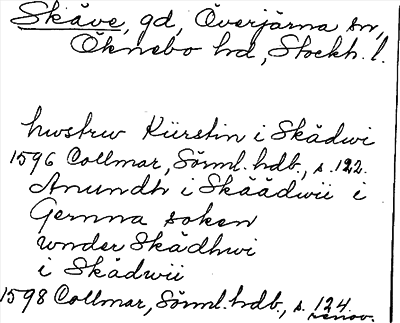 Skäve, gd, Överjärna sn,
Öknebo hd, Stockh. l.
hwstrw Kürstin i Skädwi
1596 Collmar, Sörml. hdb., s. 122.
Anundh i Skäädwii i
Gernna soken
wnder Skädhwi
i Skädwii
1598 Collmar, Sörml. hdb., s. 124
renov.